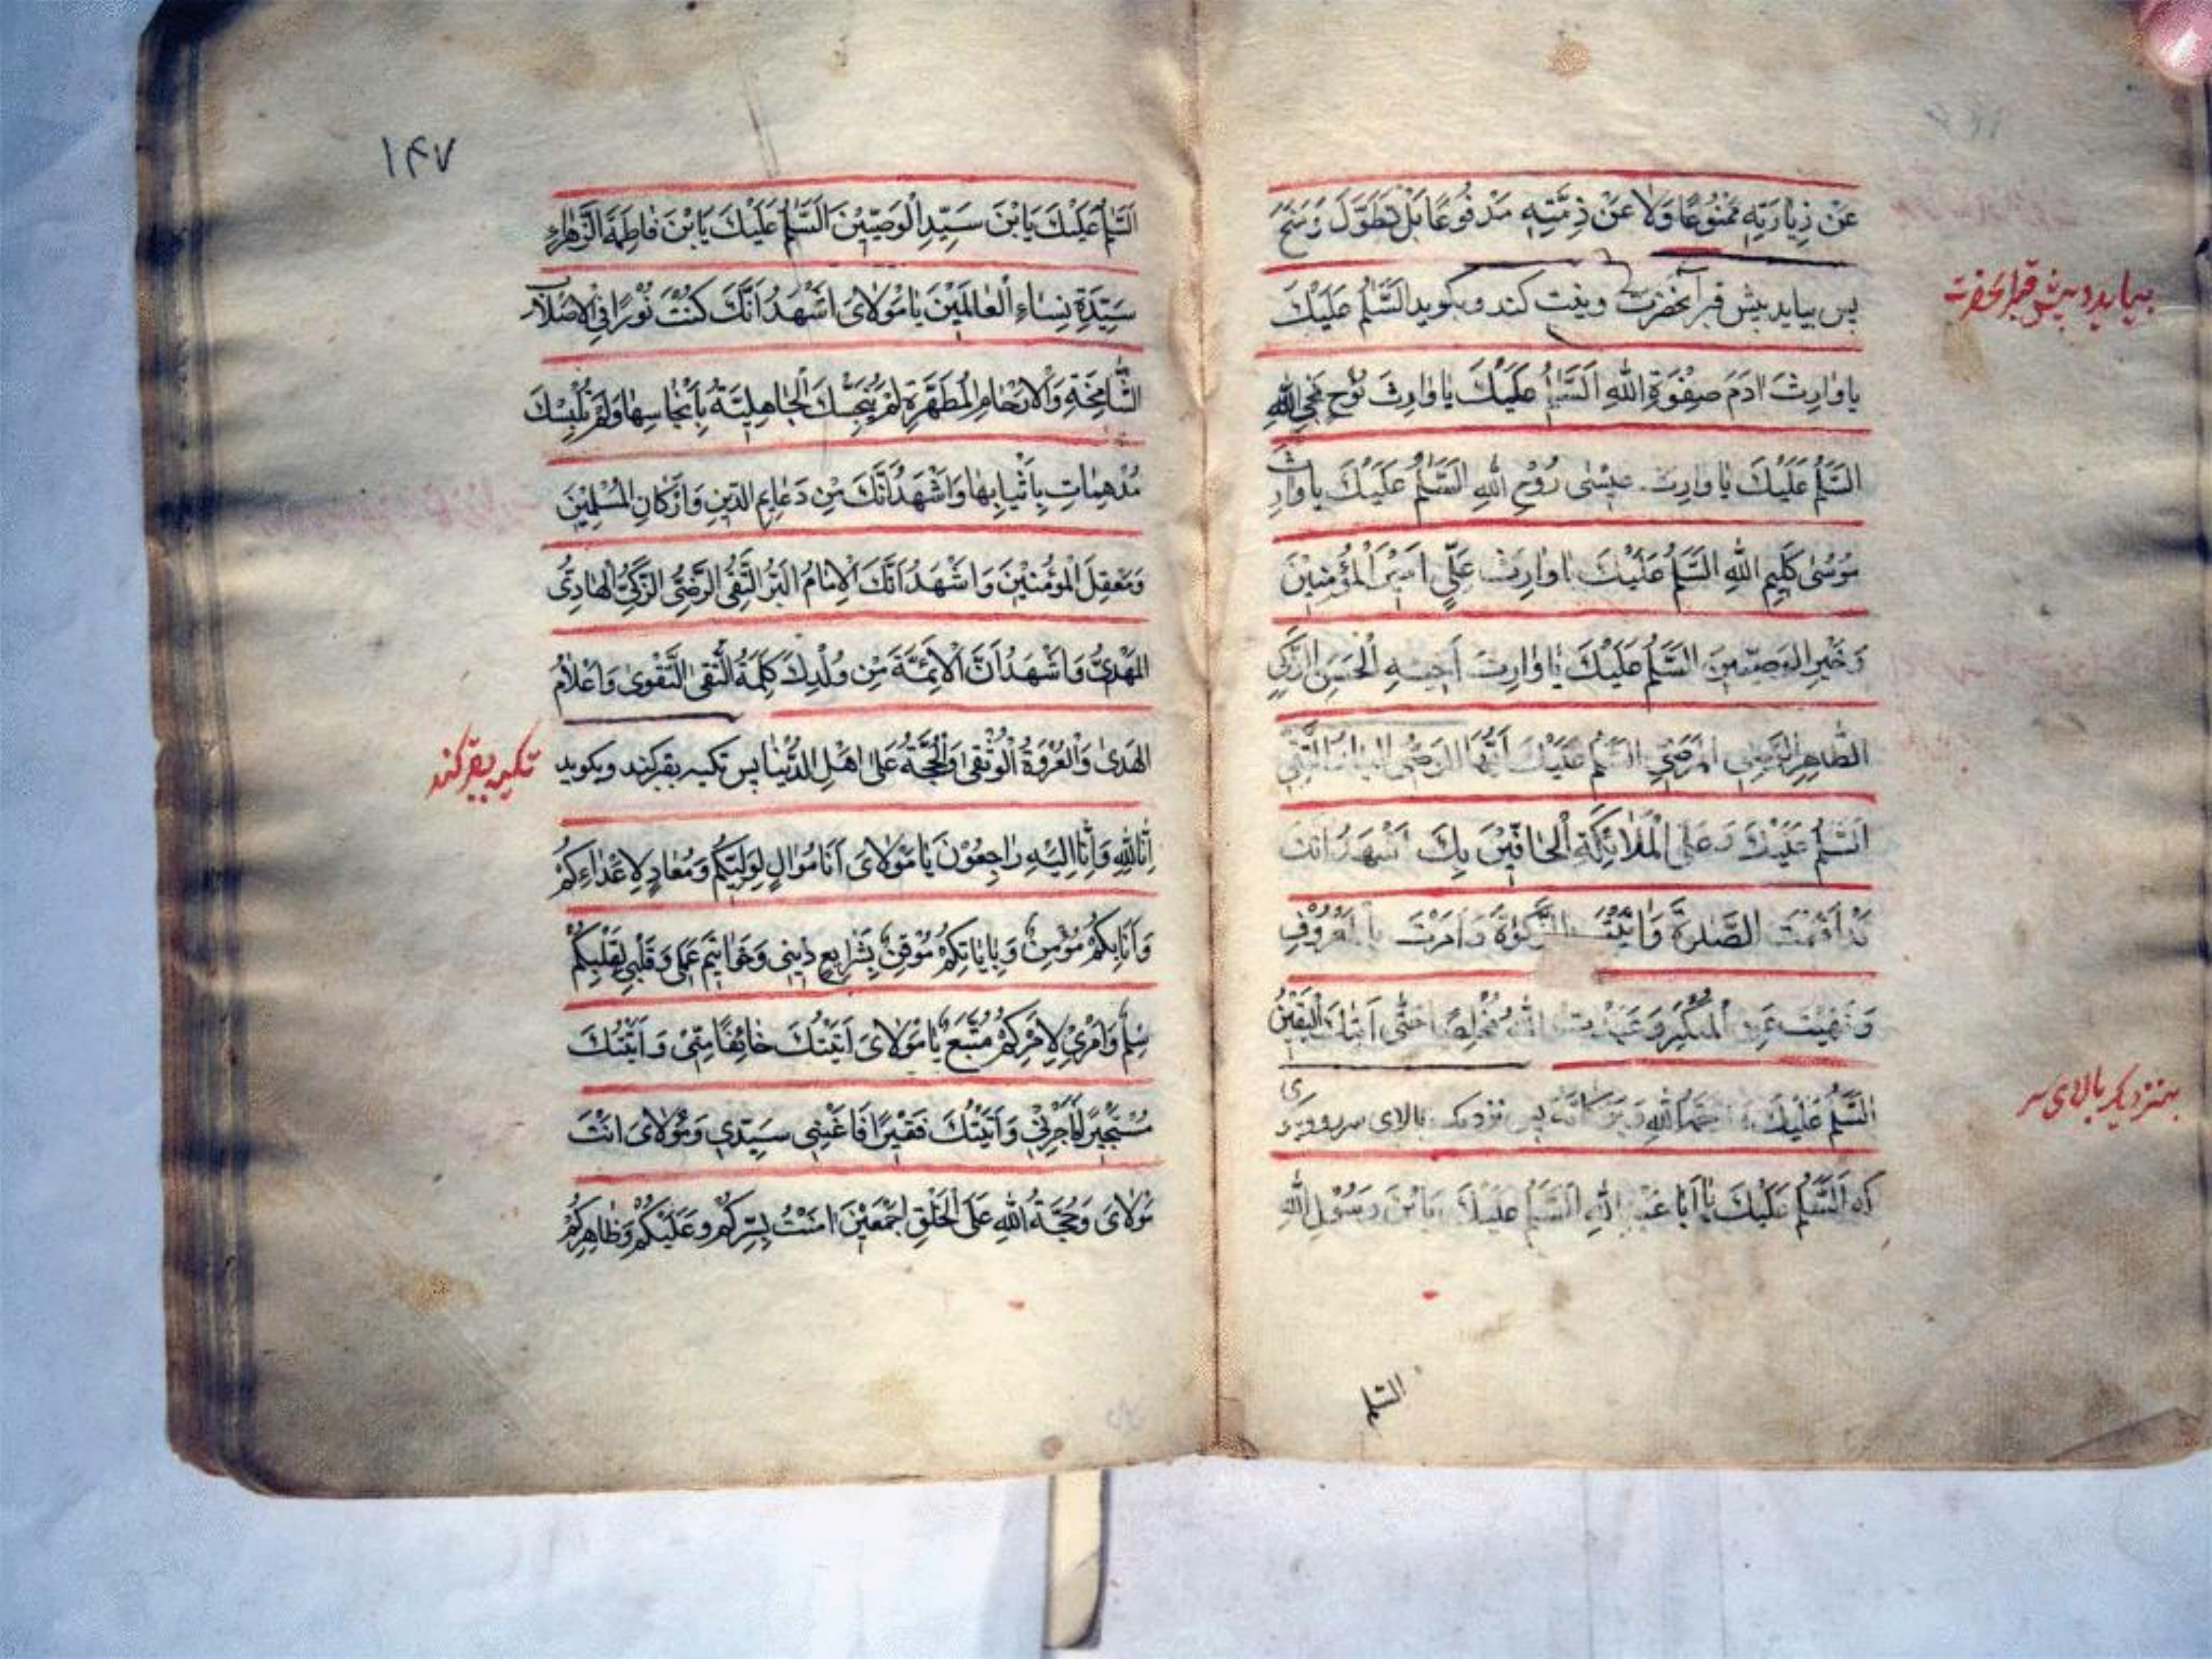 عَنْ زِيارَتِهِ مَمْنُوعًا وَلا عَنْ ذِمَّتِهِ مَدْفُوعًا بَلْ تَطَوَّلَ وَمَنَحَ
پس بیاید پیش قبر آنحضرت و نیت کند و بکوید اَلسَّلٰمُ عَلَيْكَ
بیاید و پیش قبر آنحضرت
يا وارِثَ ادَمَ صِفْوَةِ اللهِ اَلسَّلٰمُ عَلَيْكَ يا وارِثَ نُوحٍ نَجِيِّ اللهِ
اَلسَّلٰمُ عَلَيْكَ يا وارِثَ عيسٰى رُوْحِ اللهِ اَلسَّلٰمُ عَلَيْكَ يا وارِثَ
مُوسٰى كَلِيمِ اللهِ اَلسَّلٰمُ عَلَيْكَ يا وارِثَ عَلِيٍّ اَمِيرِ الْمُؤْمِنِينَ
وَخَيْرِ الْوَصِيّينَ اَلسَّلٰمُ عَلَيْكَ يا وارِثَ اَخيهِ الْحَسَنِ الزَّكِيِّ
الطّاهِرِ الرَّضِيِّ الْمَرْضِيِّ اَلسَّلٰمُ عَلَيْكَ اَيُّهَا الْوَصِيُّ الْبَارُّ التَّقِيُّ
اَلسَّلٰمُ عَلَيْكَ وَعَلَى الْمَلٰائِكَةِ الْحٰافّينَ بِكَ اَشْهَدُ اَنَّكَ
قَدْ اَقَمْتَ الصَّلٰوةَ وَاٰتَيْتَ الزَّكٰوةَ وَاَمَرْتَ بِالْمَعْرُوفِ
وَنَهَيْتَ عَنِ الْمُنْكَرِ وَعَبَدْتَ اللهَ مُخْلِصًا حَتّٰى اَتٰيكَ الْيَقينُ
اَلسَّلٰمُ عَلَيْكَ وَرَحْمَةُ اللهِ وَبَرَكاتُهُ پس نزدیک بالای سر رود وبکوی
بنزدیک بالای سر
که اَلسَّلٰمُ عَلَيْكَ يا اَبا عَبْدِ اللهِ اَلسَّلٰمُ عَلَيْكَ يَا بْنَ رَسُولِ اللهِ
السّلم
۱۴۷
اَلسَّلٰمُ عَلَيْكَ يَا بْنَ سَيِّدِ الْوَصِيّينَ اَلسَّلٰمُ عَلَيْكَ يَا بْنَ فاطِمَةَ الزَّهْراءِ
سَيِّدَةِ نِساءِ الْعالَمينَ يا مَوْلاىَ اَشْهَدُ اَنَّكَ كُنْتَ نُوْرًا فِى الْاَصْلابِ
الشّامِخَةِ وَالْاَرْحامِ الْمُطَهَّرَةِ لَمْ يُنَجِّسْكَ الْجاهِلِيَّةُ بِاَنْجاسِها وَلَمْ تُلْبِسْكَ
مُدْهِمّاتِ بِاَثْيابِها وَاَشْهَدُ اَنَّكَ مِنْ دَعائِمِ الدّينِ وَاَرْكانِ الْمُسْلِمينَ
وَمَعْقِلِ الْمُؤْمِنينَ وَاَشْهَدُ اَنَّكَ الْاِمامُ الْبَرُّ التَّقِىُّ الرَّضِىُّ الزَّكِىُّ الْهادِىُّ
الْمَهْدِىُّ وَاَشْهَدُ اَنَّ الْاَئِمَّةَ مِنْ وُلْدِكَ كَلِمَةُ التَّقىٰ التَّقْوىٰ وَاَعْلامُ
الْهُدىٰ وَالْعُرْوَةُ الْوُثْقىٰ وَالْحُجَّةُ عَلىٰ اَهْلِ الدُّنْيا پس تکیه بقبر کند وبکوید
تکیه بقبر کند
اِنّا لِلّهِ وَاِنّا اِلَيْهِ راجِعُوْنَ يا مَوْلاىَ اَنَا مُوالٍ لِوَلِيِّكُمْ وَمُعادٍ لِاَعْداءِكُمْ
وَاَنَا بِكُمْ مُؤْمِنٌ وَبِاِيابِكُمْ مُوْقِنٌ بِشَرايِعِ دينى وَخَواتيمِ عَمَلى وَقَلْبى لِقَلْبِكُمْ
سِلْمٌ وَاَمْرى لِاَمْرِكُمْ مُتَّبِعٌ يا مَوْلاىَ اَتَيْتُكَ خائِفًا مِنّى وَاَتَيْتُكَ
مُسْتَجيرًا فَاَجِرْنى وَاَتَيْتُكَ فَقيرًا فَاَغْنِنى سَيِّدى وَمَوْلاىَ اَنْتَ
مَوْلاىَ وَحُجَّةُ اللهِ عَلَى الْخَلْقِ اَجْمَعينَ امَنْتُ بِسِرِّكُمْ وَعَلَيْكُمْ وَظاهِرِكُمْ